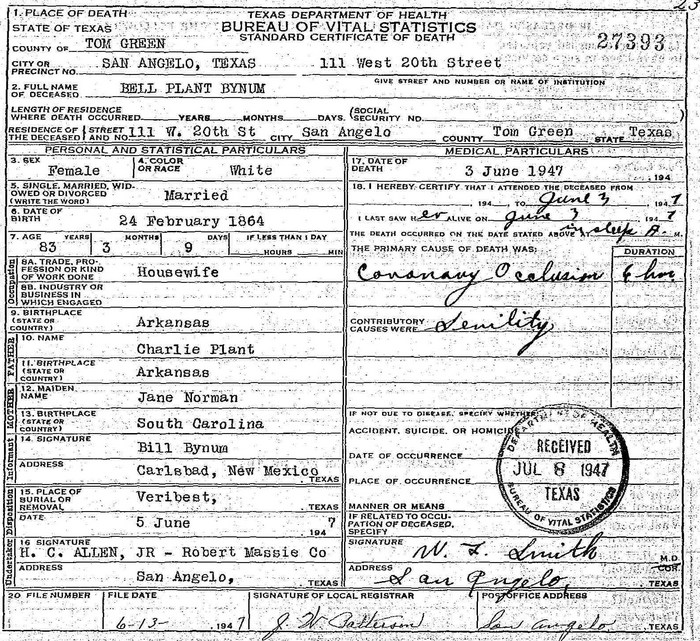 23
1. PLACE OF DEATH
STATE OF TEXAS
TEXAS DEPARTMENT OF HEALTH
BUREAU OF VITAL STATISTICS
STANDARD CERTIFICATE OF DEATH
27393
COUNTY OF TOM GREEN
CITY OR PRECINCT NO. SAN ANGELO, TEXAS 111 West 20th Street
GIVE STREET AND NUMBER OR NAME OF INSTITUTION
2. FULL NAME OF DECEASED BELL PLANT BYNUM
LENGTH OF RESIDENCE WHERE DEATH OCCURRED YEARS MONTHS DAYS. (SOCIAL SECURITY NO. )
RESIDENCE OF THE DECEASED (STREET AND NO. 111 W. 20th St CITY San Angelo COUNTY Tom Green STATE Texas
PERSONAL AND STATISTICAL PARTICULARS
3. SEX Female
4. COLOR OR RACE White
5. SINGLE, MARRIED, WIDOWED OR DIVORCED (WRITE THE WORD) Married
6. DATE OF BIRTH 24 February 1864
7. AGE 83 YEARS 3 MONTHS 9 DAYS IF LESS THAN 1 DAY HOURS MIN
Occupation
8A. TRADE, PROFESSION OR KIND OF WORK DONE Housewife
8B. INDUSTRY OR BUSINESS IN WHICH ENGAGED
9. BIRTHPLACE (STATE OR COUNTRY) Arkansas
FATHER
10. NAME Charlie Plant
11. BIRTHPLACE (STATE OR COUNTRY) Arkansas
MOTHER
12. MAIDEN NAME Jane Norman
13. BIRTHPLACE (STATE OR COUNTRY) South Carolina
Informant
14. SIGNATURE Bill Bynum
ADDRESS Carlsbad, New Mexico TEXAS
Disposition
15. PLACE OF BURIAL OR REMOVAL Veribest, TEXAS
DATE 5 June 1947
Undertaker
16 SIGNATURE H. C. ALLEN, JR - Robert Massie Co
ADDRESS San Angelo, TEXAS
MEDICAL PARTICULARS
17. DATE OF DEATH 3 June 1947 , 194
18. I HEREBY CERTIFY THAT I ATTENDED THE DECEASED FROM
, 194 TO June 3, 1947
I LAST SAW H er ALIVE ON June 3 1947
THE DEATH OCCURRED ON THE DATE STATED ABOVE AT in sleep A. M.
THE PRIMARY CAUSE OF DEATH WAS: DURATION
Coronary Occlusion 6 hrs
CONTRIBUTORY CAUSES WERE Senility
IF NOT DUE TO DISEASE, SPECIFY WHETHER:
ACCIDENT, SUICIDE, OR HOMICIDE
DATE OF OCCURRENCE
PLACE OF OCCURRENCE
MANNER OR MEANS
IF RELATED TO OCCUPATION OF DECEASED, SPECIFY
DEPARTMENT OF HEALTH
RECEIVED
JUL 8 1947
TEXAS
BUREAU OF VITAL STATISTICS
SIGNATURE W. L. Smith M.D.
COR.
ADDRESS San Angelo, TEXAS
20 FILE NUMBER
FILE DATE 6-13- 1947
SIGNATURE OF LOCAL REGISTRAR J. W. Patterson
POST OFFICE ADDRESS San Angelo TEXAS